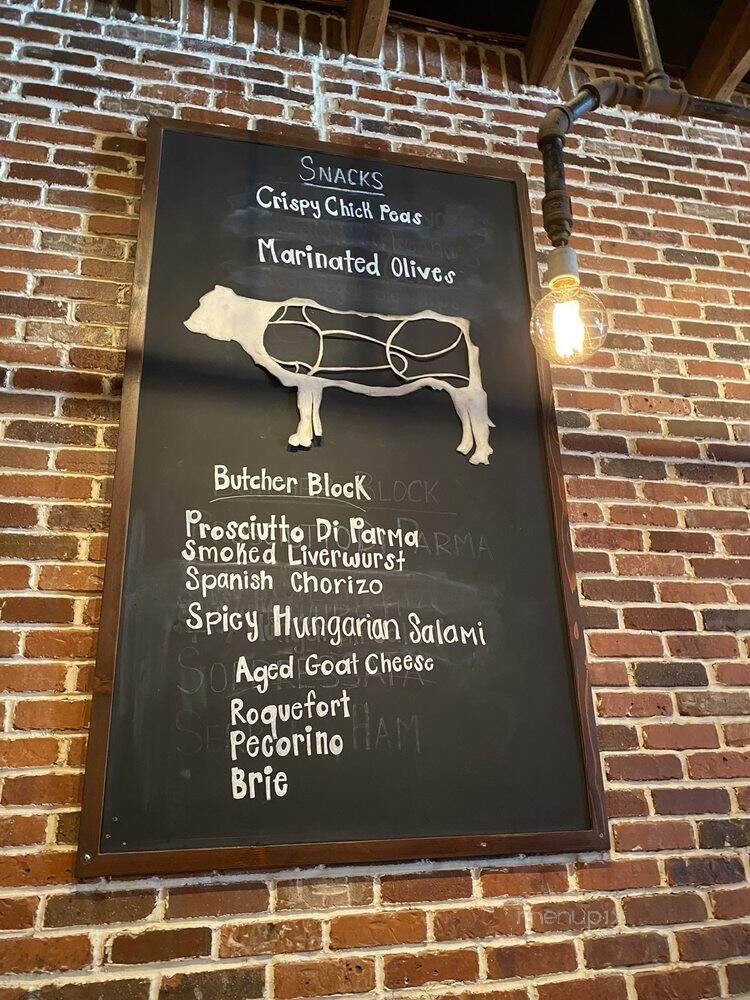 SNACKS
Crispy Chick Peas
Marinated Olives
Butcher Block
Prosciutto Di Parma
Smoked Liverwurst
Spanish Chorizo
Spicy Hungarian Salami
Aged Goat Cheese
Roquefort
Pecorino
Brie
menupix